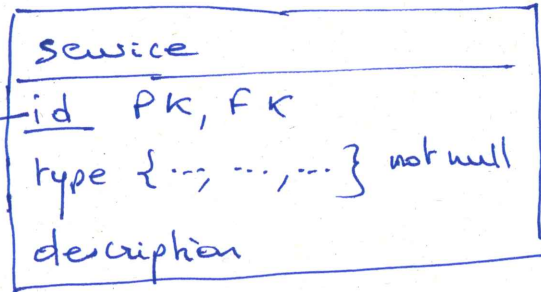 service
id PK, FK
type {..., ..., ...} not null
description